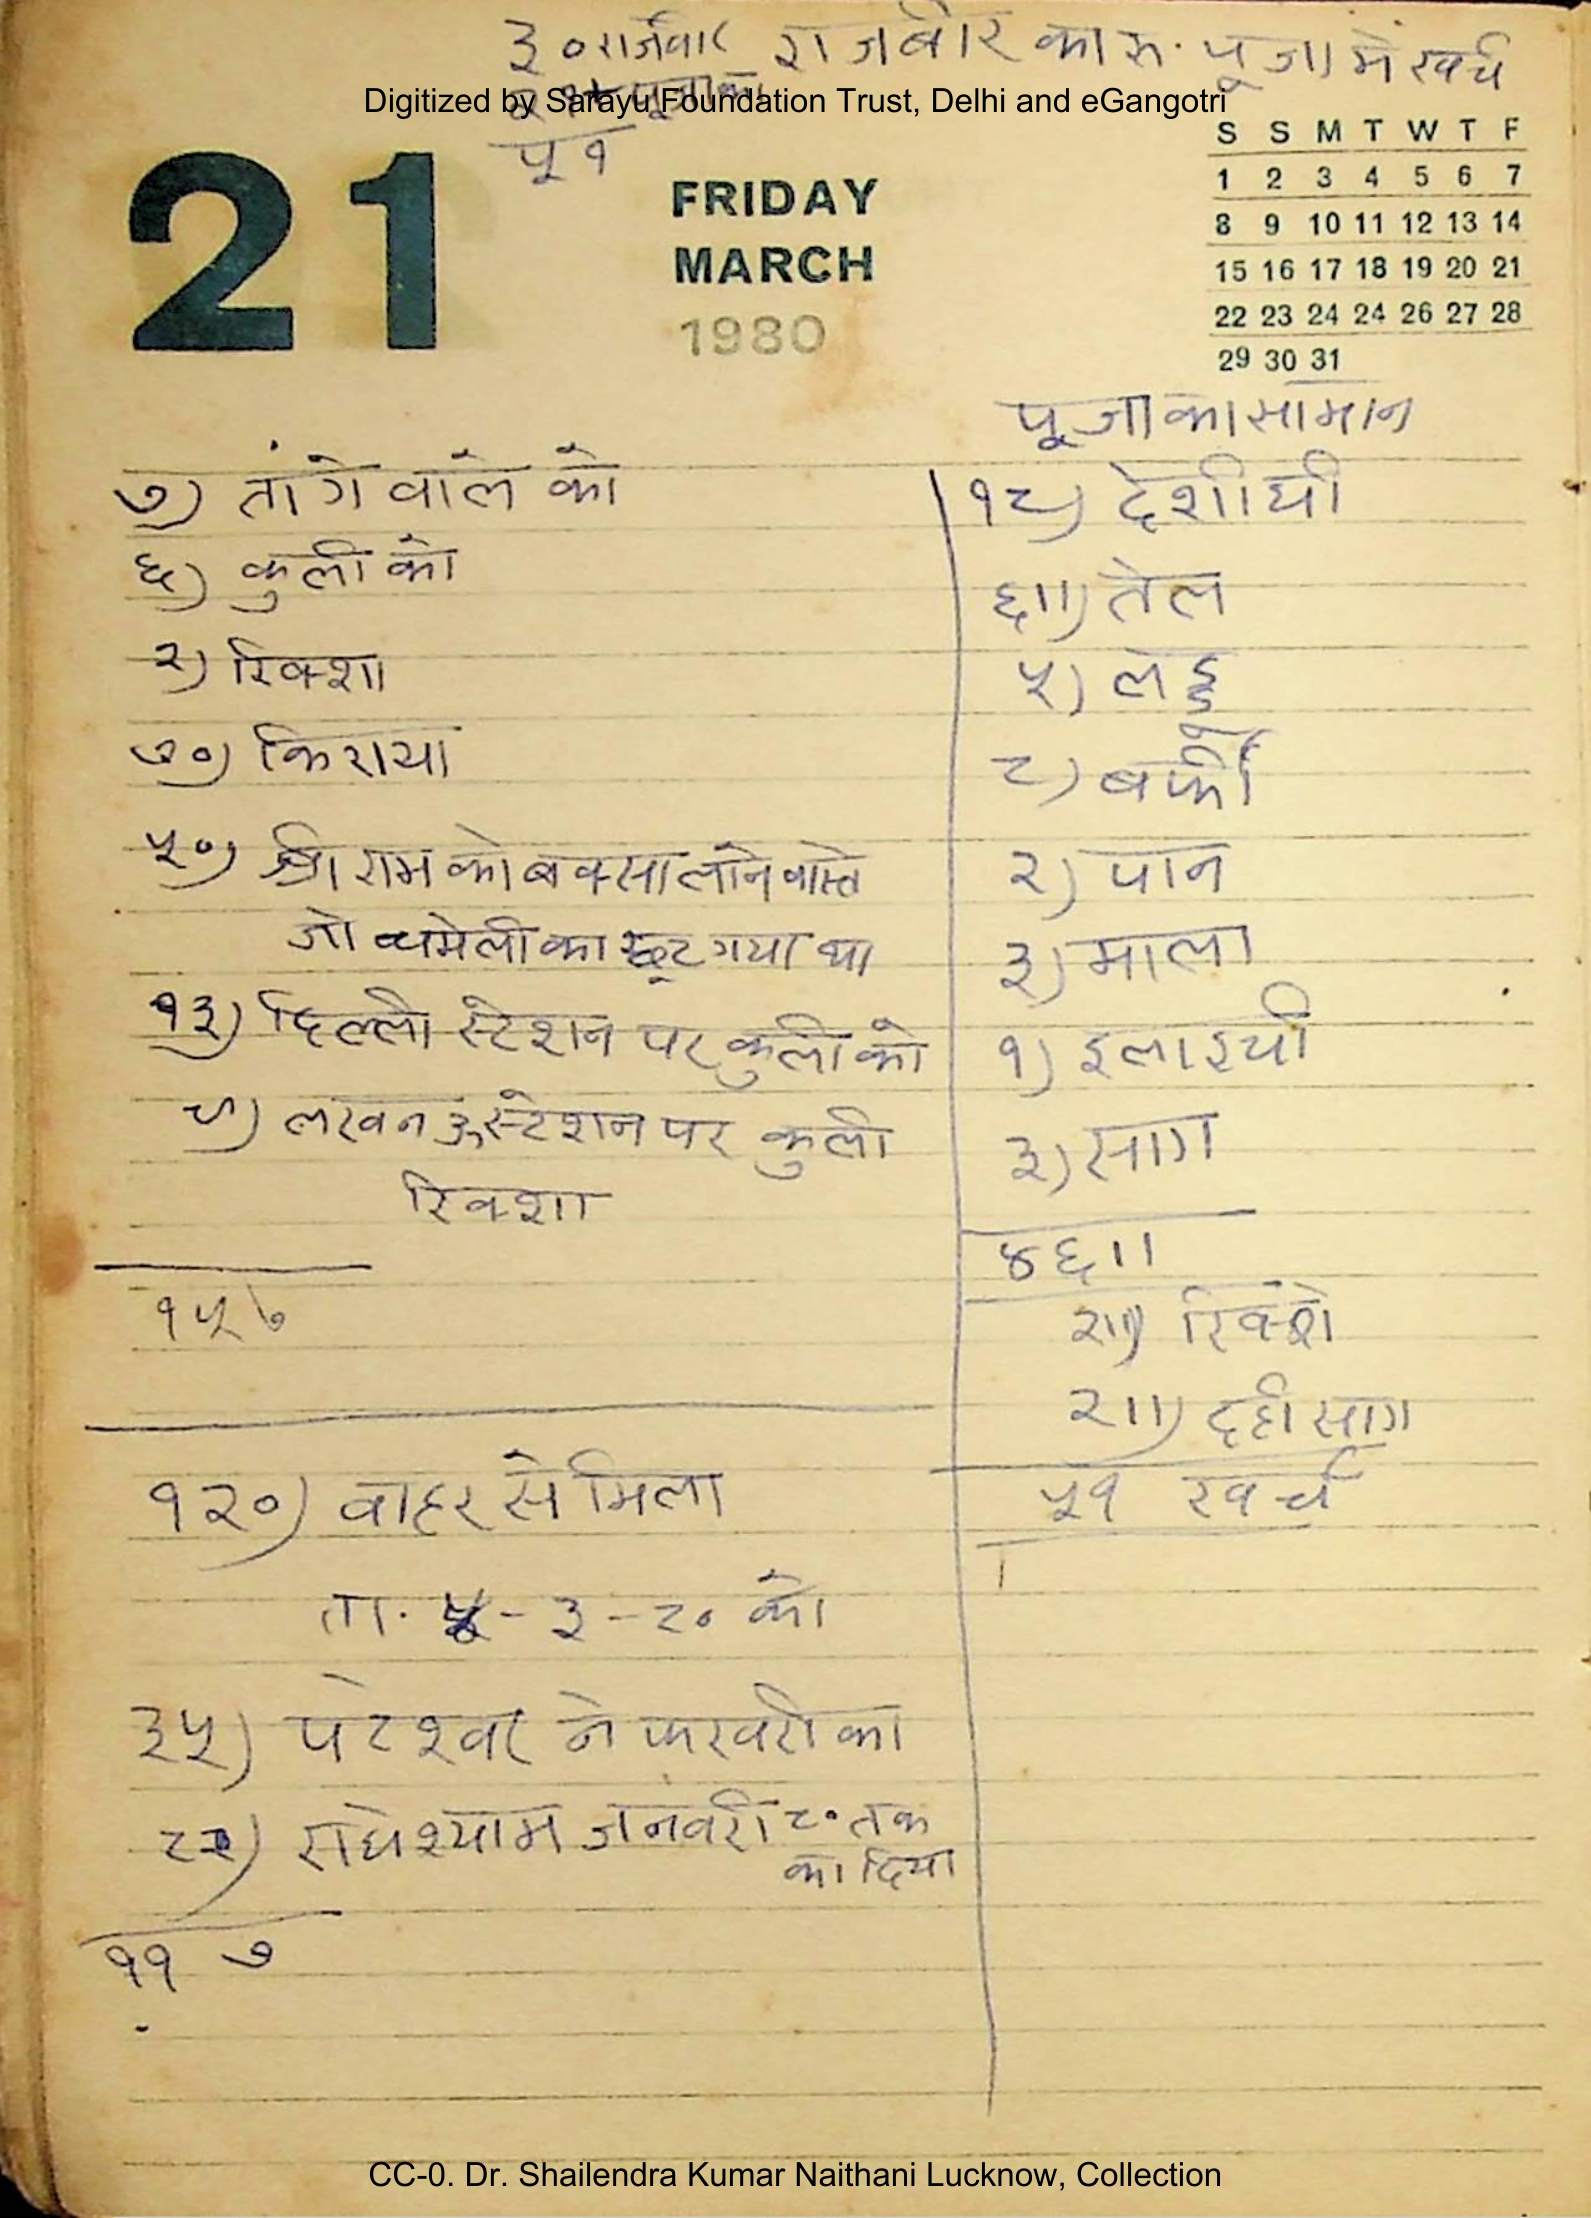 ३० राजवीर राजबीर का रु. पूजा में खर्च
२१ पूजा का
Digitized by Sarayu Foundation Trust, Delhi and eGangotri
५१
21
FRIDAY
MARCH
1980
S S M T W T F
1 2 3 4 5 6 7
8 9 10 11 12 13 14
15 16 17 18 19 20 21
22 23 24 24 26 27 28
29 30 31
७) तांगे वाले को
६) कुली को
२) रिक्शा
७०) किराया
५०) श्री राम को बक्सा लाने वास्ते
जो चमेली का छूट गया था
१३) दिल्ली स्टेशन पर कुली को
५) लखनऊ स्टेशन पर कुली
रिक्शा
१५७
१२०) वाहर से मिला
ता. ५-३-८० को
३५) पटेश्वर ने फरवरी का
८२) राधेश्याम जनवरी ८० तक
का दिया
११७
पूजा का सामान
१८) देशी घी
६॥) तेल
५) लड्डू
८) बर्फी
२) पान
३) माला
१) इलाइची
३) साग
४६॥
२॥) रिक्शे
२॥) दही साग
५१ खर्च
CC-0. Dr. Shailendra Kumar Naithani Lucknow, Collection